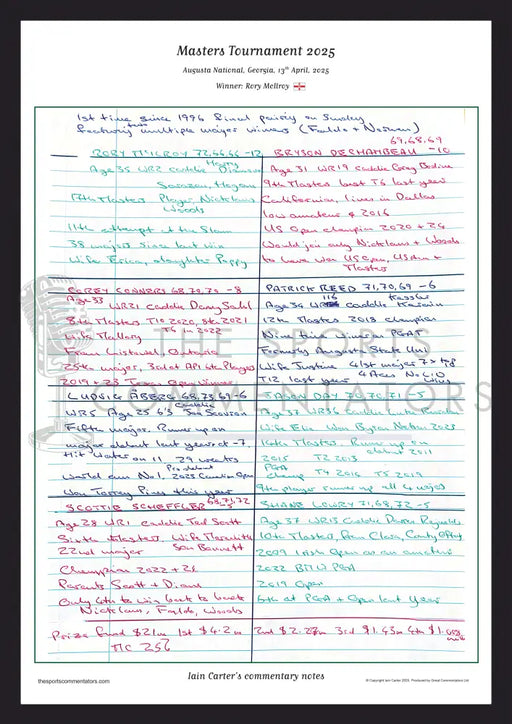 Masters Tournament 2025
Augusta National, Georgia, 13th April, 2025
Winner: Rory McIlroy
1st time since 1996 final pairing on Sunday
featuring multiple major winners (Faldo + Norman)
RORY McILROY 72,66,66 -12
Age 35 WR2 caddie Harry Diamond
Sarazen, Hogan
17th Masters Player, Nicklaus
Woods
11th attempt at the Slam
38 majors since last win
Wife Erica, daughter Poppy
69,68,69
BRYSON DECHAMBEAU -10
Age 31 WR19 caddie Greg Bodine
9th Masters best T6 last year
Californian, lives in Dallas
low amateur 2016
US Open champion 2020 + 24
Would join only Nicklaus + Woods
to have won US Open, US Am +
Masters
COREY CONNERS 68,70,70 -8
Age 33 WR21 caddie Danny Sahl
8th Masters T10 2020, 8th 2021
T6 in 2022
Wife Malory
From Listowel, Ontario
25th major, 3rd at API 6th Players
2019 + 23 Texas Open winner
PATRICK REED 71,70,69 -6
Age 34 WR 116 caddie Kessler Karain
12th Masters 2018 champion
Nine time winner PGAT
Formerly Augusta State Uni
Wife Justine 41st major 7 x top
4 Aces No LIV
T12 last year wins
LUDVIG ABERG 68,73,69 -6
WR5 Age 25 6'3 Joe Skovron
Fifth major. Runner up on
major debut last year at -7.
Hit water on 11 29 weeks
Pro debut
world am No 1, 2023 Canadian Open
Won Torrey Pines this year
JASON DAY 70,70,71
Age 37 WR36 caddie Luke
Wife Ellie Won Byron Nelson 2023
14th Masters Runner up on
debut 2011
2015 T2 2013
PGA
Champ T4 2016 T5 2019
9th player runner up all 4 majors
SCOTTIE SCHEFFLER 68,71,72
Age 28 WR1 caddie Ted Scott
Sixth Masters, Wife Meredith
22nd major Son Bennett
Champion 2022 + 24
Parents Scott + Diane
Only 4th to win back to back
Nicklaus, Faldo, Woods
SHANE LOWRY 71,68,72 -5
Age 37 WR13 Caddie Darren Reynolds
10th Masters, From Clara, County Offaly
2009 Irish Open as an amateur
2022 BMW PGA
2019 Open
6th at PGA + Open last year
Prize fund $21m 1st $4.2m 2nd $2.27m 3rd $1.43m 4th $1.008m
TIC 256
THE SPORTS
COMMENTATORS
thesportscommentators.com
Iain Carter's commentary notes
© Copyright Iain Carter 2025. Produced by Great Commentators Ltd